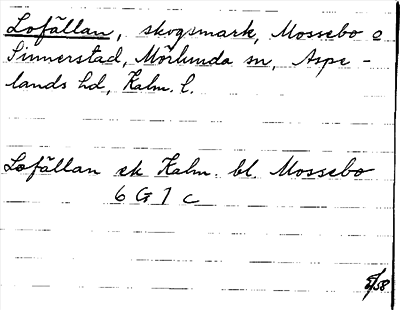 Lofällan, skogsmark, Mossebo o
Sinnerstad, Mörlunda sn, Aspe-
lands hd, Kalm. l.
Lofällan ek Kalm. bl. Mossebo
6 G 7 c
5/58